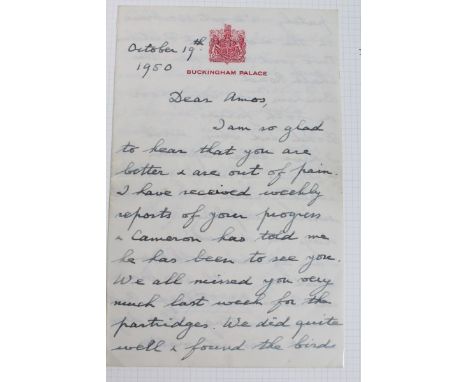 October 19th
1950
BUCKINGHAM PALACE
Dear Amos,
I am so glad
to hear that you are
better & are out of pain.
I have received weekly
reports of your progress
& Cameron has told me
he has been to see you.
We all missed you very
much last week for the
partridges. We did quite
well & found the bird